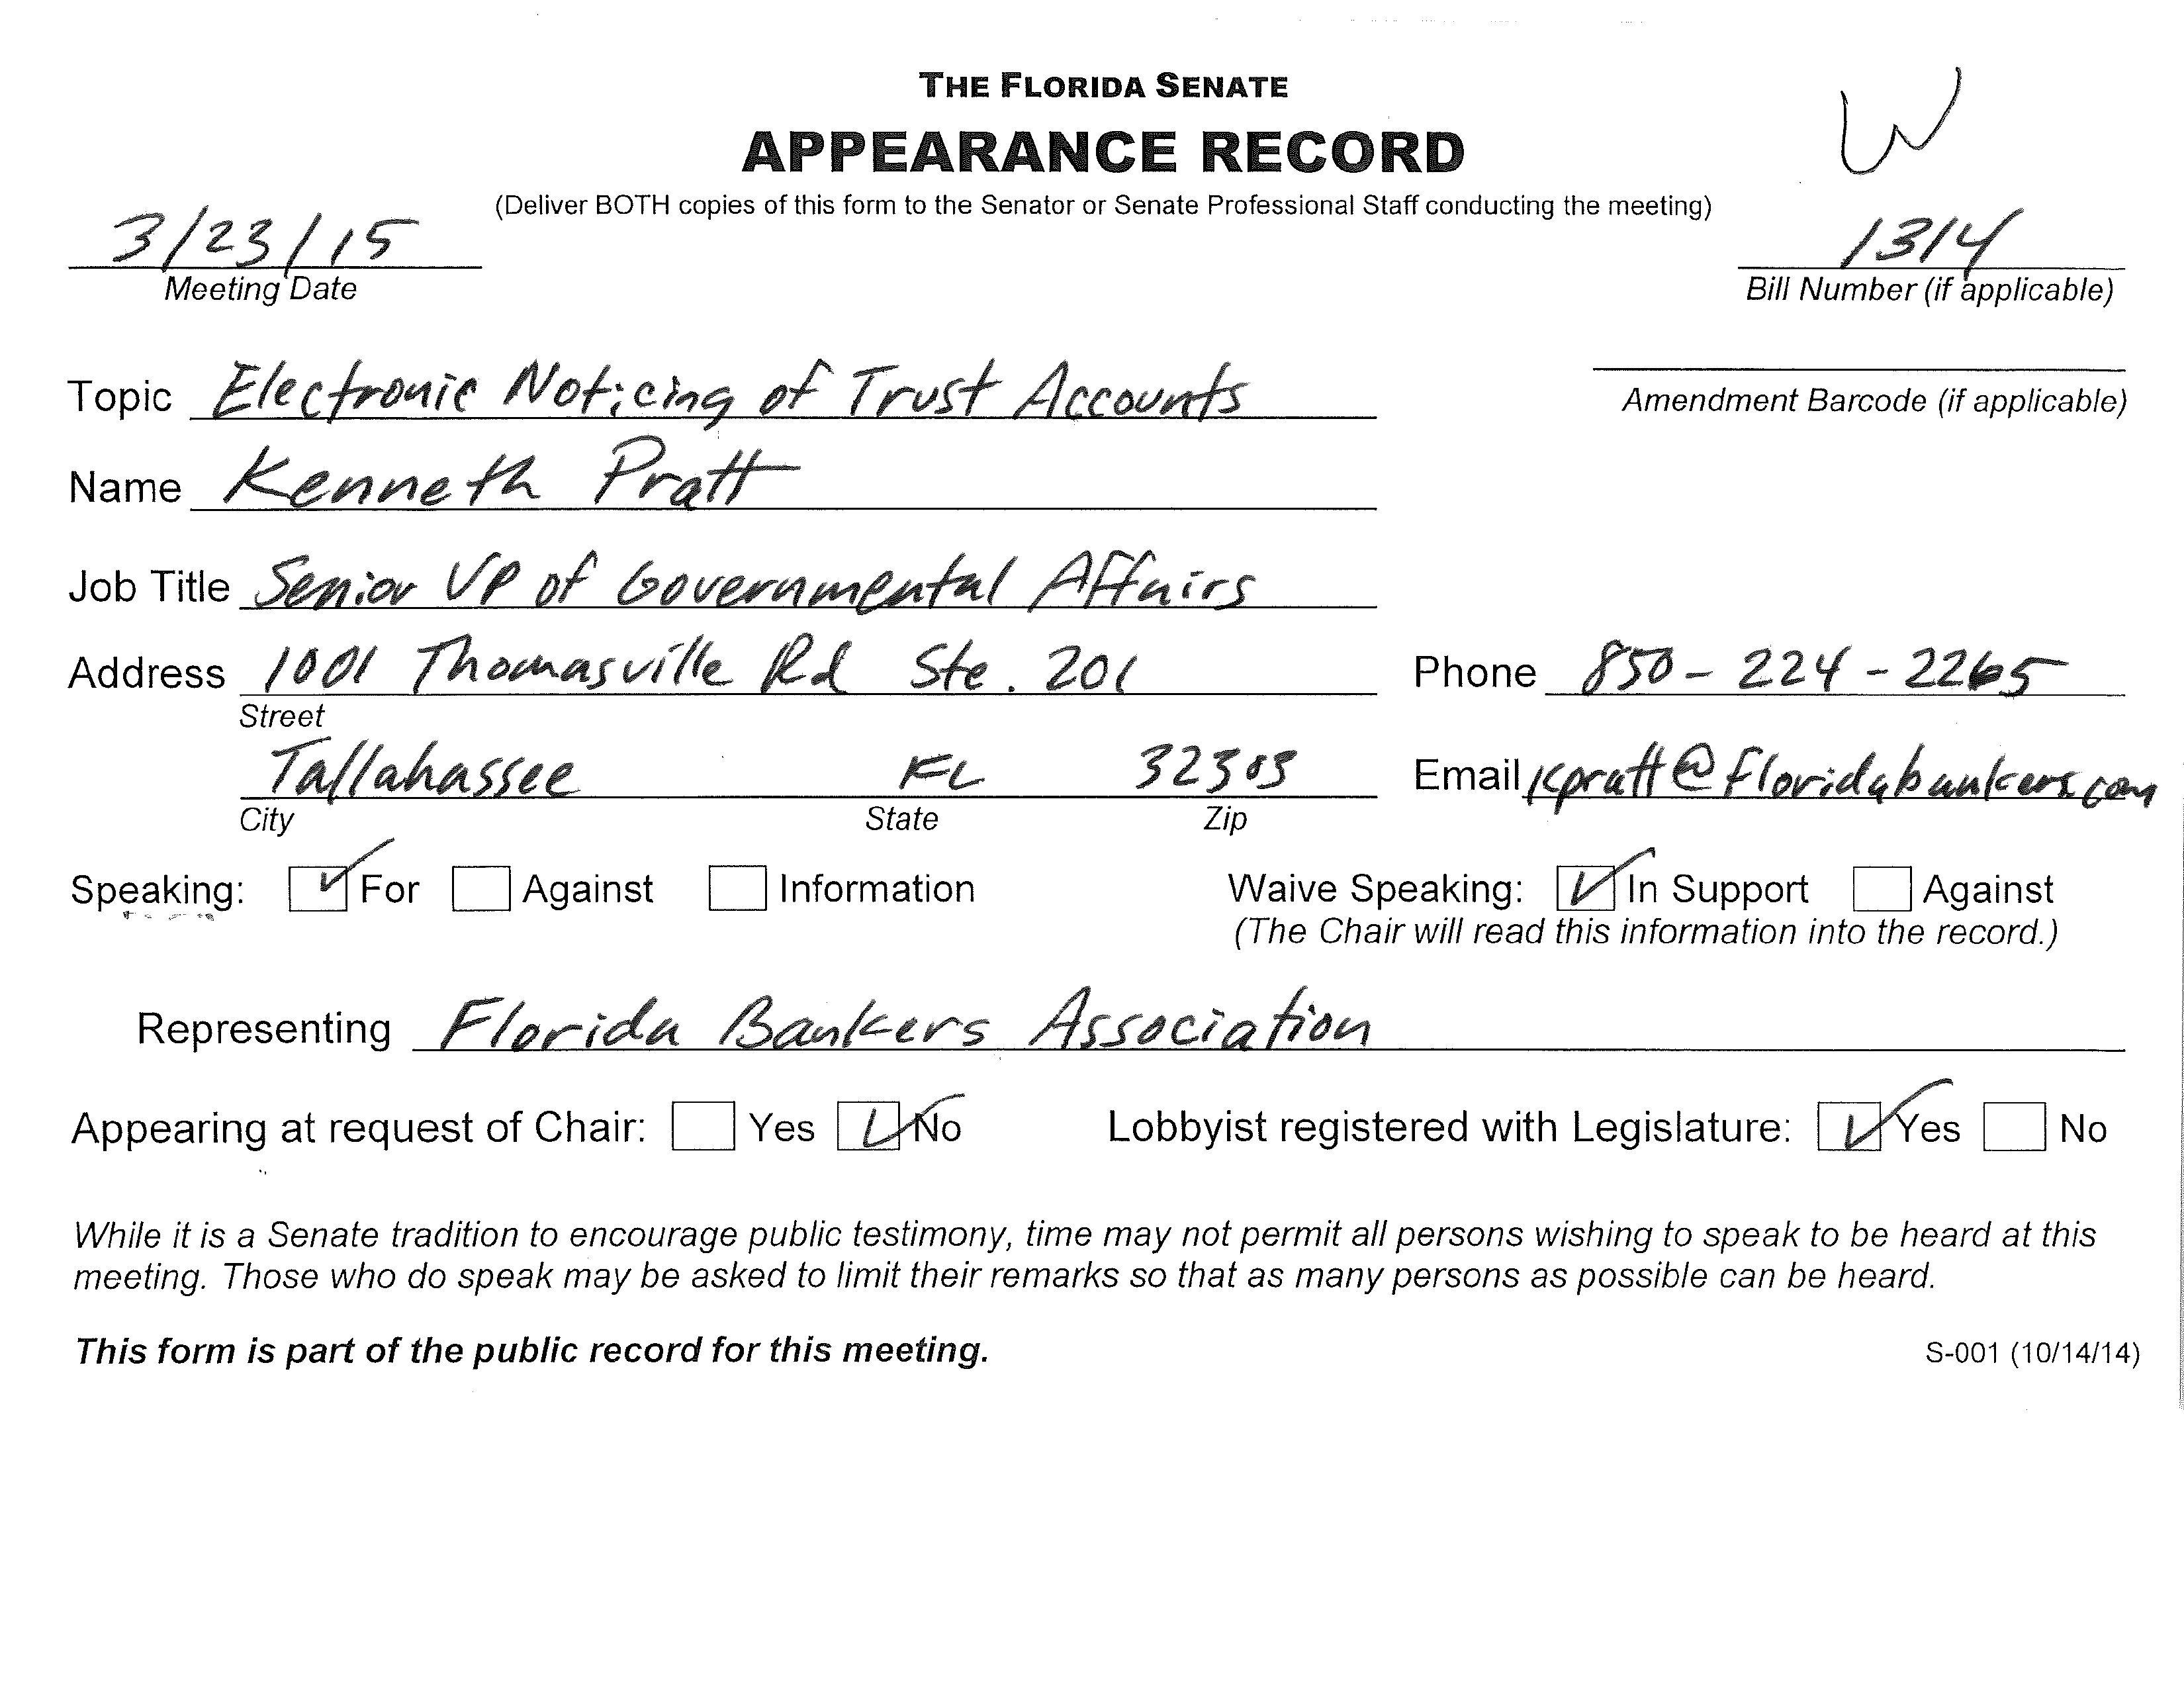 THE FLORIDA SENATE
W
APPEARANCE RECORD
(Deliver BOTH copies of this form to the Senator or Senate Professional Staff conducting the meeting)
3/23/15 1314
Meeting Date Bill Number (if applicable)
Topic Electronic Noticing of Trust Accounts
Amendment Barcode (if applicable)
Name Kenneth Pratt
Job Title Senior VP of Governmental Affairs
Address 1001 Thomasville Rd Ste. 201 Phone 850-224-2265
Street
Tallahassee FL 32303 Email kpratt@floridabankers.com
City State Zip
Speaking: ✓ For Against Information Waive Speaking: ✓ In Support Against
(The Chair will read this information into the record.)
Representing Florida Bankers Association
Appearing at request of Chair: Yes ✓ No Lobbyist registered with Legislature: ✓ Yes No
While it is a Senate tradition to encourage public testimony, time may not permit all persons wishing to speak to be heard at this
meeting. Those who do speak may be asked to limit their remarks so that as many persons as possible can be heard.
This form is part of the public record for this meeting. S-001 (10/14/14)